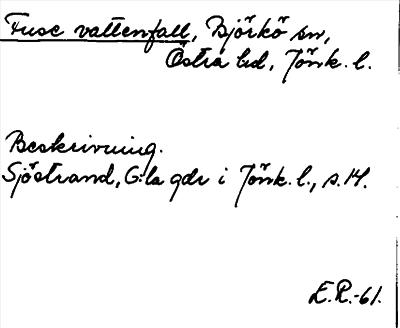 Fuse vattenfall, Björkö sn,
Östra hd, Jönk. l.
Beskrivning.
Sjöstrand, G:la gdr i Jönk. l., s. 14.
E.R.-61.